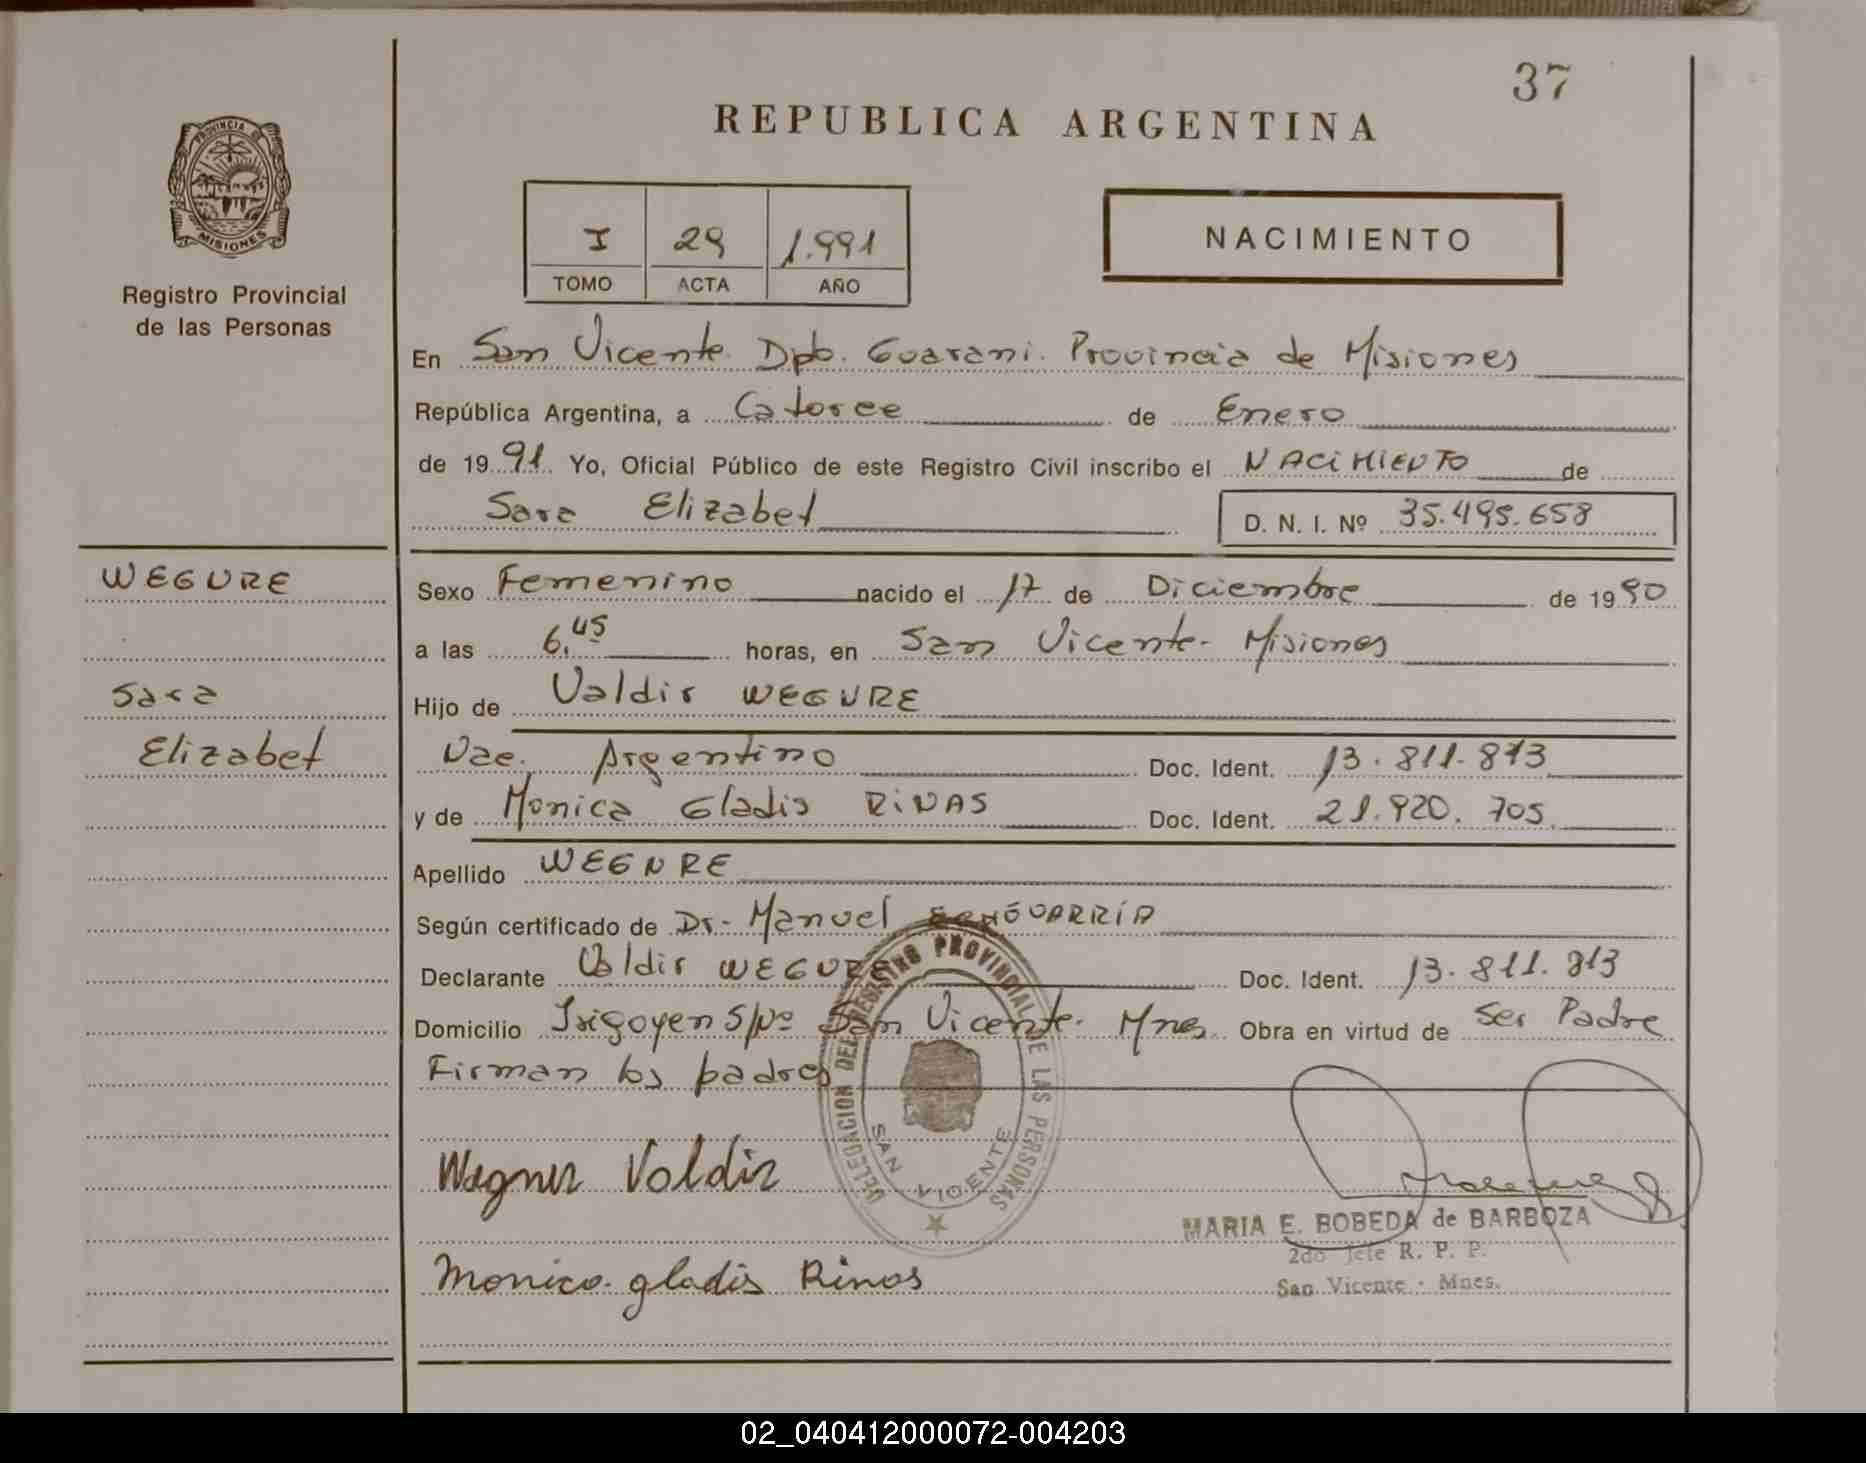 37
REPUBLICA ARGENTINA
PROVINCIA DE
MISIONES
Registro Provincial
de las Personas
I 29 1.991
TOMO ACTA AÑO
NACIMIENTO
En San Vicente. Dpto. Guarani. Provincia de Misiones
República Argentina, a Catorce de Enero
de 1991 Yo, Oficial Público de este Registro Civil inscribo el NACIMIENTO de
Sara Elizabet D. N. I. Nº 35.495.658
WEGURE
Sexo Femenino nacido el 17 de Diciembre de 1990
a las 6,45 horas, en San Vicente - Misiones
Sara
Hijo de Valdir WEGURE
Elizabet
Nac. Argentino Doc. Ident. 13.811.813
y de Monica Gladis RIVAS Doc. Ident. 21.920.705
Apellido WEGNRE
Según certificado de Dr. Manuel ECHEVARRIA
Declarante Valdir WEGURE Doc. Ident. 13.811.813
Domicilio Irigoyen S/Nº San Vicente. Mnes. Obra en virtud de Ser Padre
Firman los padres
DELEGACION DEL REGISTRO PROVINCIAL DE LAS PERSONAS
SAN VICENTE
Wagner Valdir
MARIA E. BOBEDA de BARBOZA
2do Jefe R. P. P.
San Vicente - Mnes.
Monica gladis Rivas
02_040412000072-004203